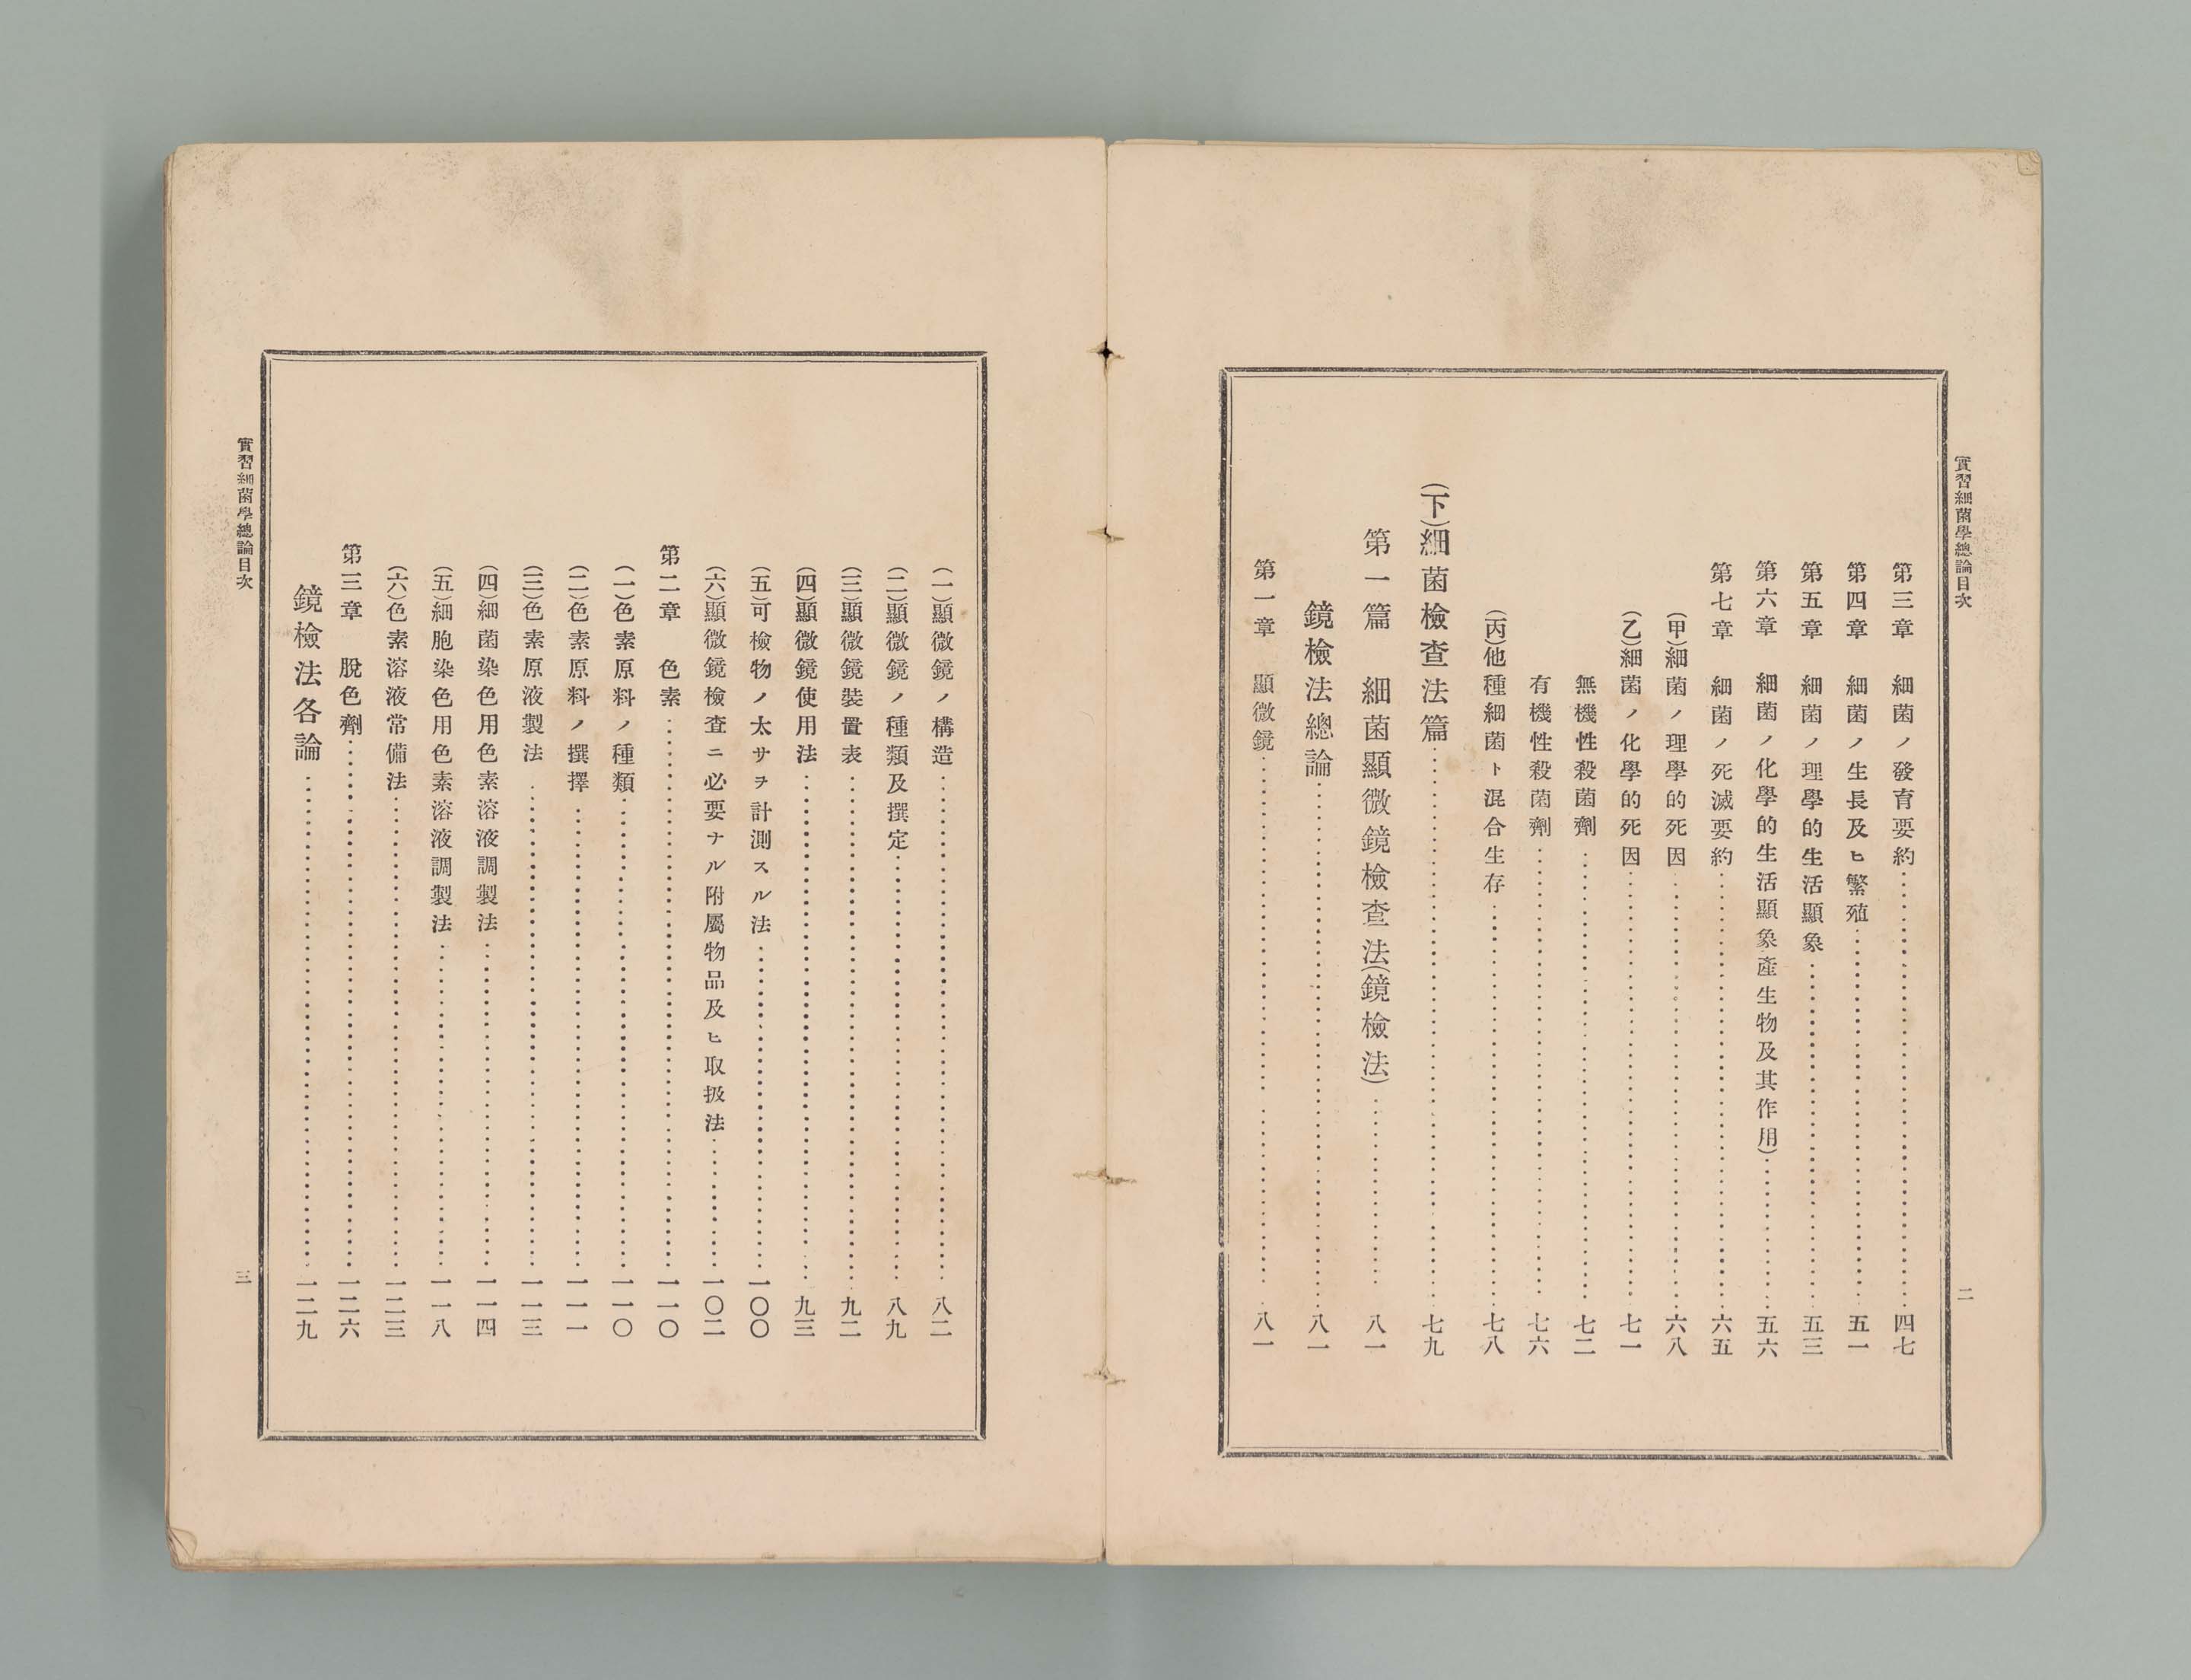 實習細菌學總論目次
二
第三章　細菌ノ發育要約…………四七
第四章　細菌ノ生長及ヒ繁殖…………五一
第五章　細菌ノ理學的生活顯象…………五三
第六章　細菌ノ化學的生活顯象產生物及其作用)…………五六
第七章　細菌ノ死滅要約…………六五
(甲)細菌ノ理學的死因…………六八
(乙)細菌ノ化學的死因…………七一
無機性殺菌劑…………七二
有機性殺菌劑…………七六
(丙)他種細菌ト混合生存…………七八
(下)細菌檢查法篇…………七九
第一篇　細菌顯微鏡檢查法(鏡檢法)…………八一
鏡檢法總論…………八一
第一章　顯微鏡…………八一
(一)顯微鏡ノ構造…………八二
(二)顯微鏡ノ種類及撰定…………八九
(三)顯微鏡裝置表…………九二
(四)顯微鏡使用法…………九三
(五)可檢物ノ太サヲ計測スル法…………一〇〇
(六)顯微鏡檢查ニ必要ナル附屬物品及ヒ取扱法…………一〇二
第二章　色素…………一一〇
(一)色素原料ノ種類…………一一〇
(二)色素原料ノ撰擇…………一一一
(三)色素原液製法…………一一三
(四)細菌染色用色素溶液調製法…………一一四
(五)細胞染色用色素溶液調製法…………一一八
(六)色素溶液常備法…………一二三
第三章　脫色劑…………一二六
鏡檢法各論…………一二九
實習細菌學總論目次
三